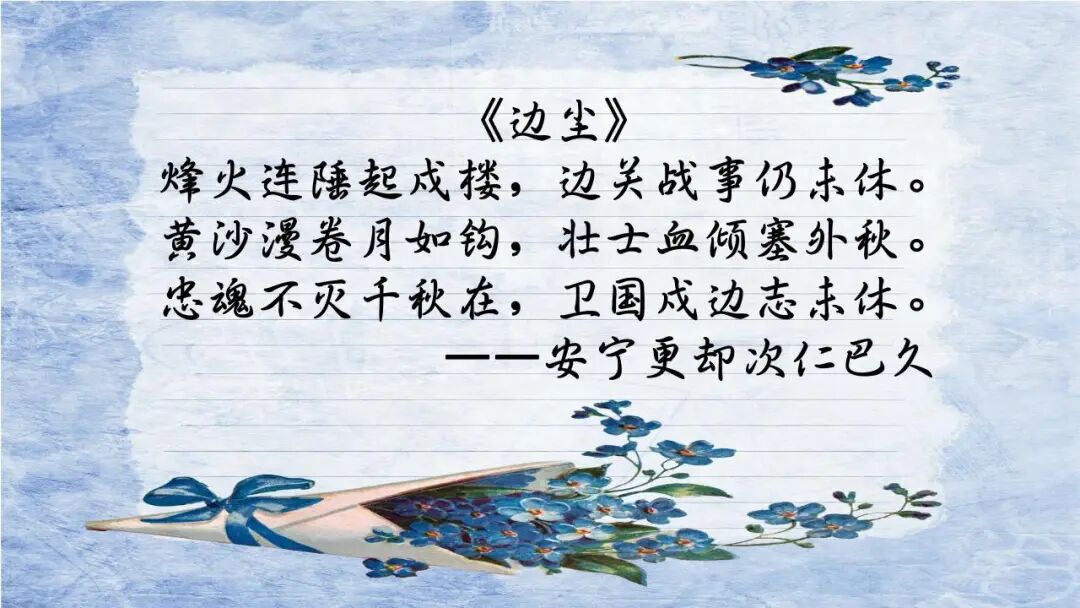 《边尘》
烽火连陲起戍楼，边关战事仍未休。
黄沙漫卷月如钩，壮士血倾塞外秋。
忠魂不灭千秋在，卫国戍边志未休。
——安宁更却次仁巴久